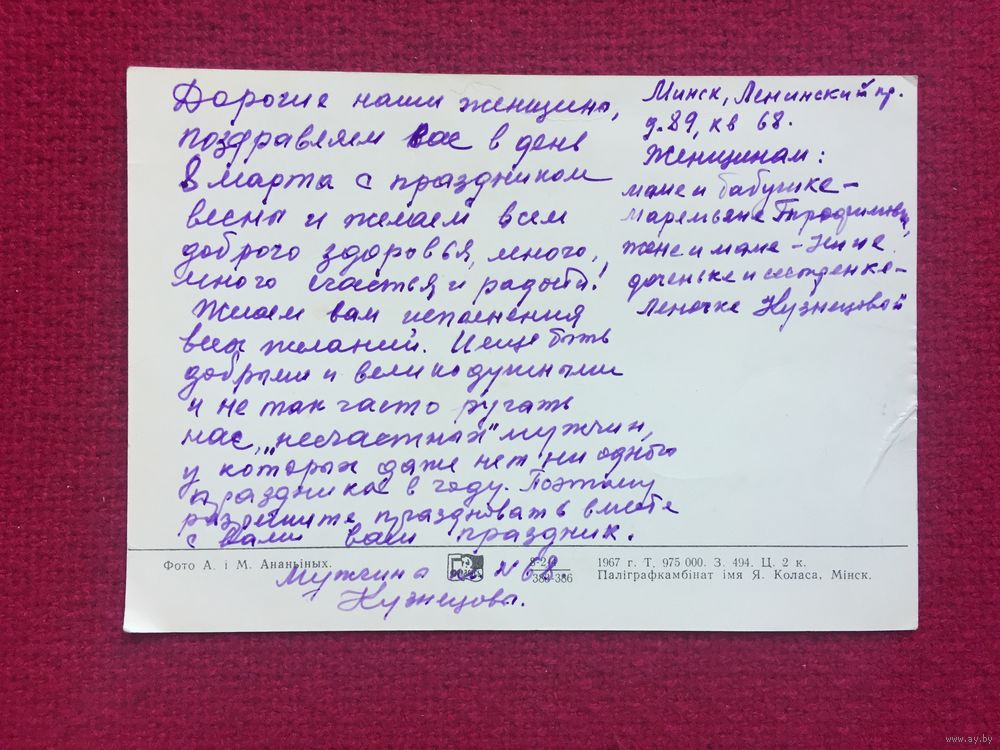 Дорогие наши женщины,
поздравляем вас в день
8 марта с праздником
весны и желаем всем
доброго здоровья, много,
много счастья и радости!
Желаем вам исполнения
всех желаний. И еще быть
добрыми и великодушными
и не так часто ругать
нас, „несчастных" мужчин,
у которых даже нет ни одного
праздника в году. Поэтому
разрешите праздновать вместе
с Вами ваш праздник.
Мужчины кв № 68.
Кузнецовы.
Минск, Ленинский пр.
д. 89, кв 68.
Женщинам:
маме и бабушке –
Маремьяне
жене и маме – Нине
доченьке и сестренке –
Леночке Кузнецовой
Фото А. і М. Ананьіных.
1967 г. Т. 975 000. З. 494. Ц. 2 к.
Паліграфкамбінат імя Я. Коласа, Мінск.
www.ay.by